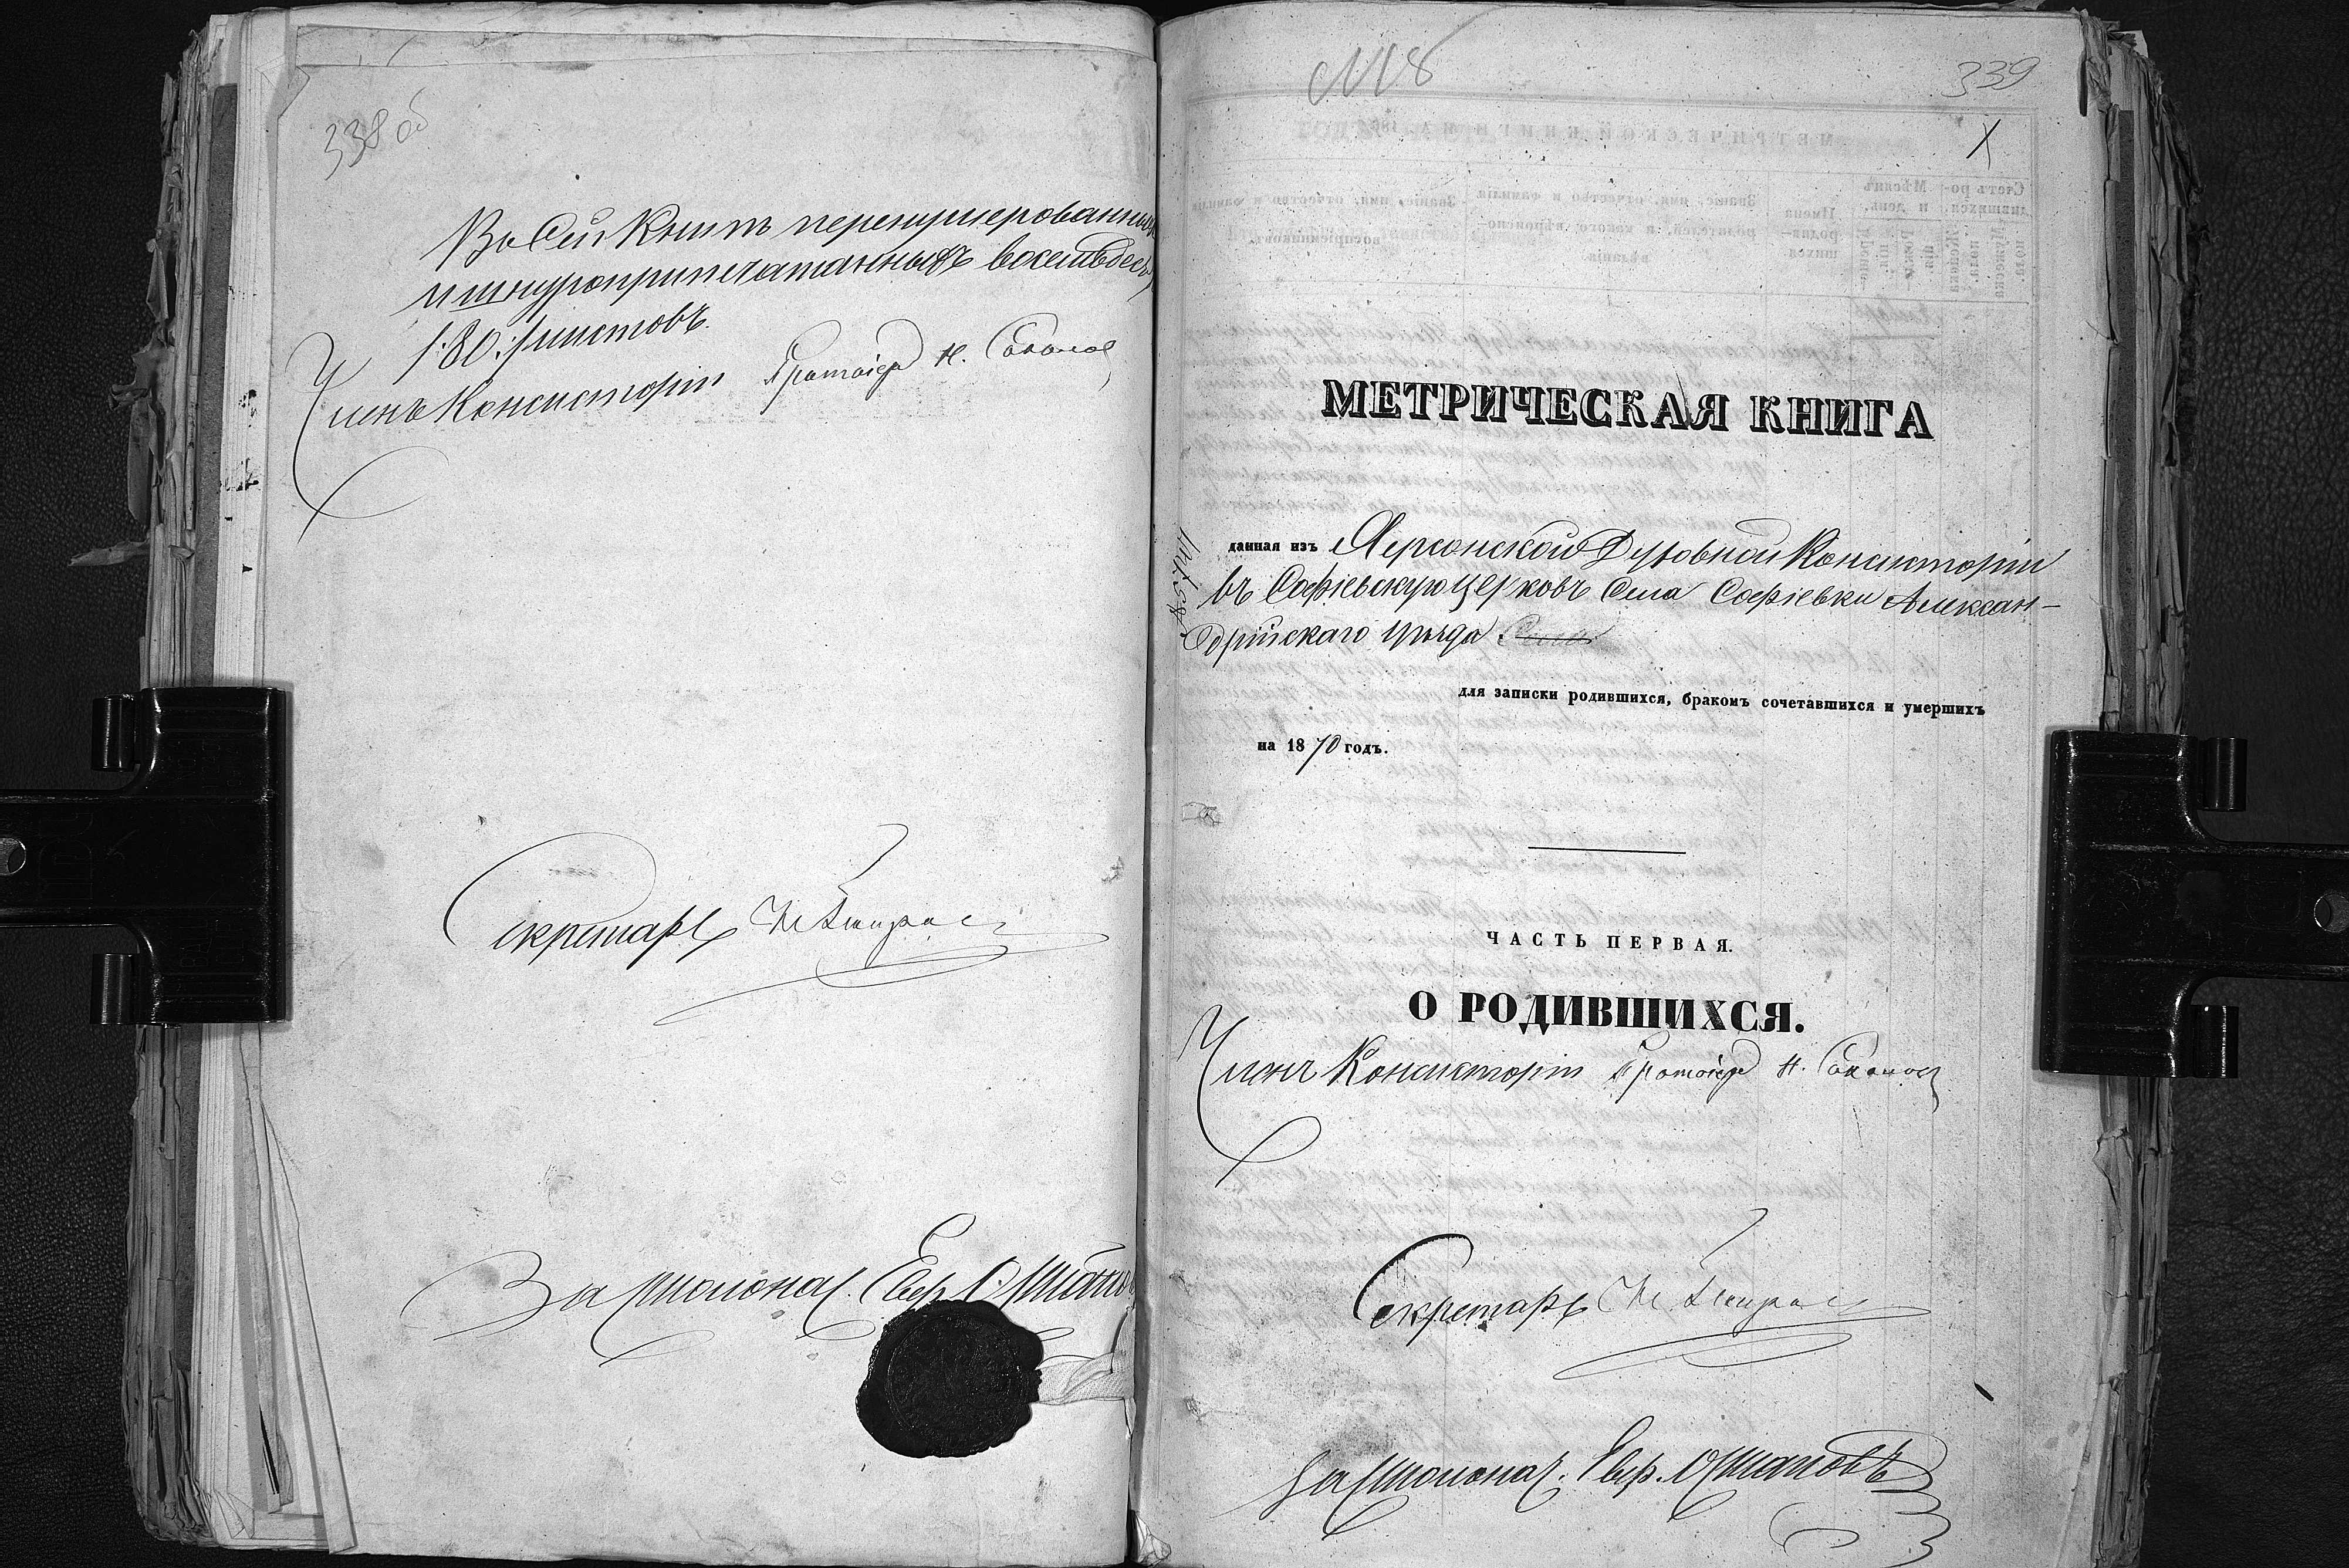 338 об
Въ сей книгѣ перенумерованныхъ
и шнуроприпечатанныхъ восемьдесятъ
/:80:/ листовъ.
Членъ Консисторіи Протоіерей Н. Соколов
Секретарь
За столонач. Евф.
№8
339
МЕТРИЧЕСКАЯ КНИГА
данная изъ Херсонской Духовной Консисторіи
въ Софіевскую церковь Села Софіевки Алексан-
дрійскаго уѣзда
для записки родившихся, бракомъ сочетавшихся и умершихъ
на 1870 годъ.
ЧАСТЬ ПЕРВАЯ.
О РОДИВШИХСЯ.
Членъ Консисторіи Протоіерей Н. Соколов
Секретарь
За столонач. Евф.